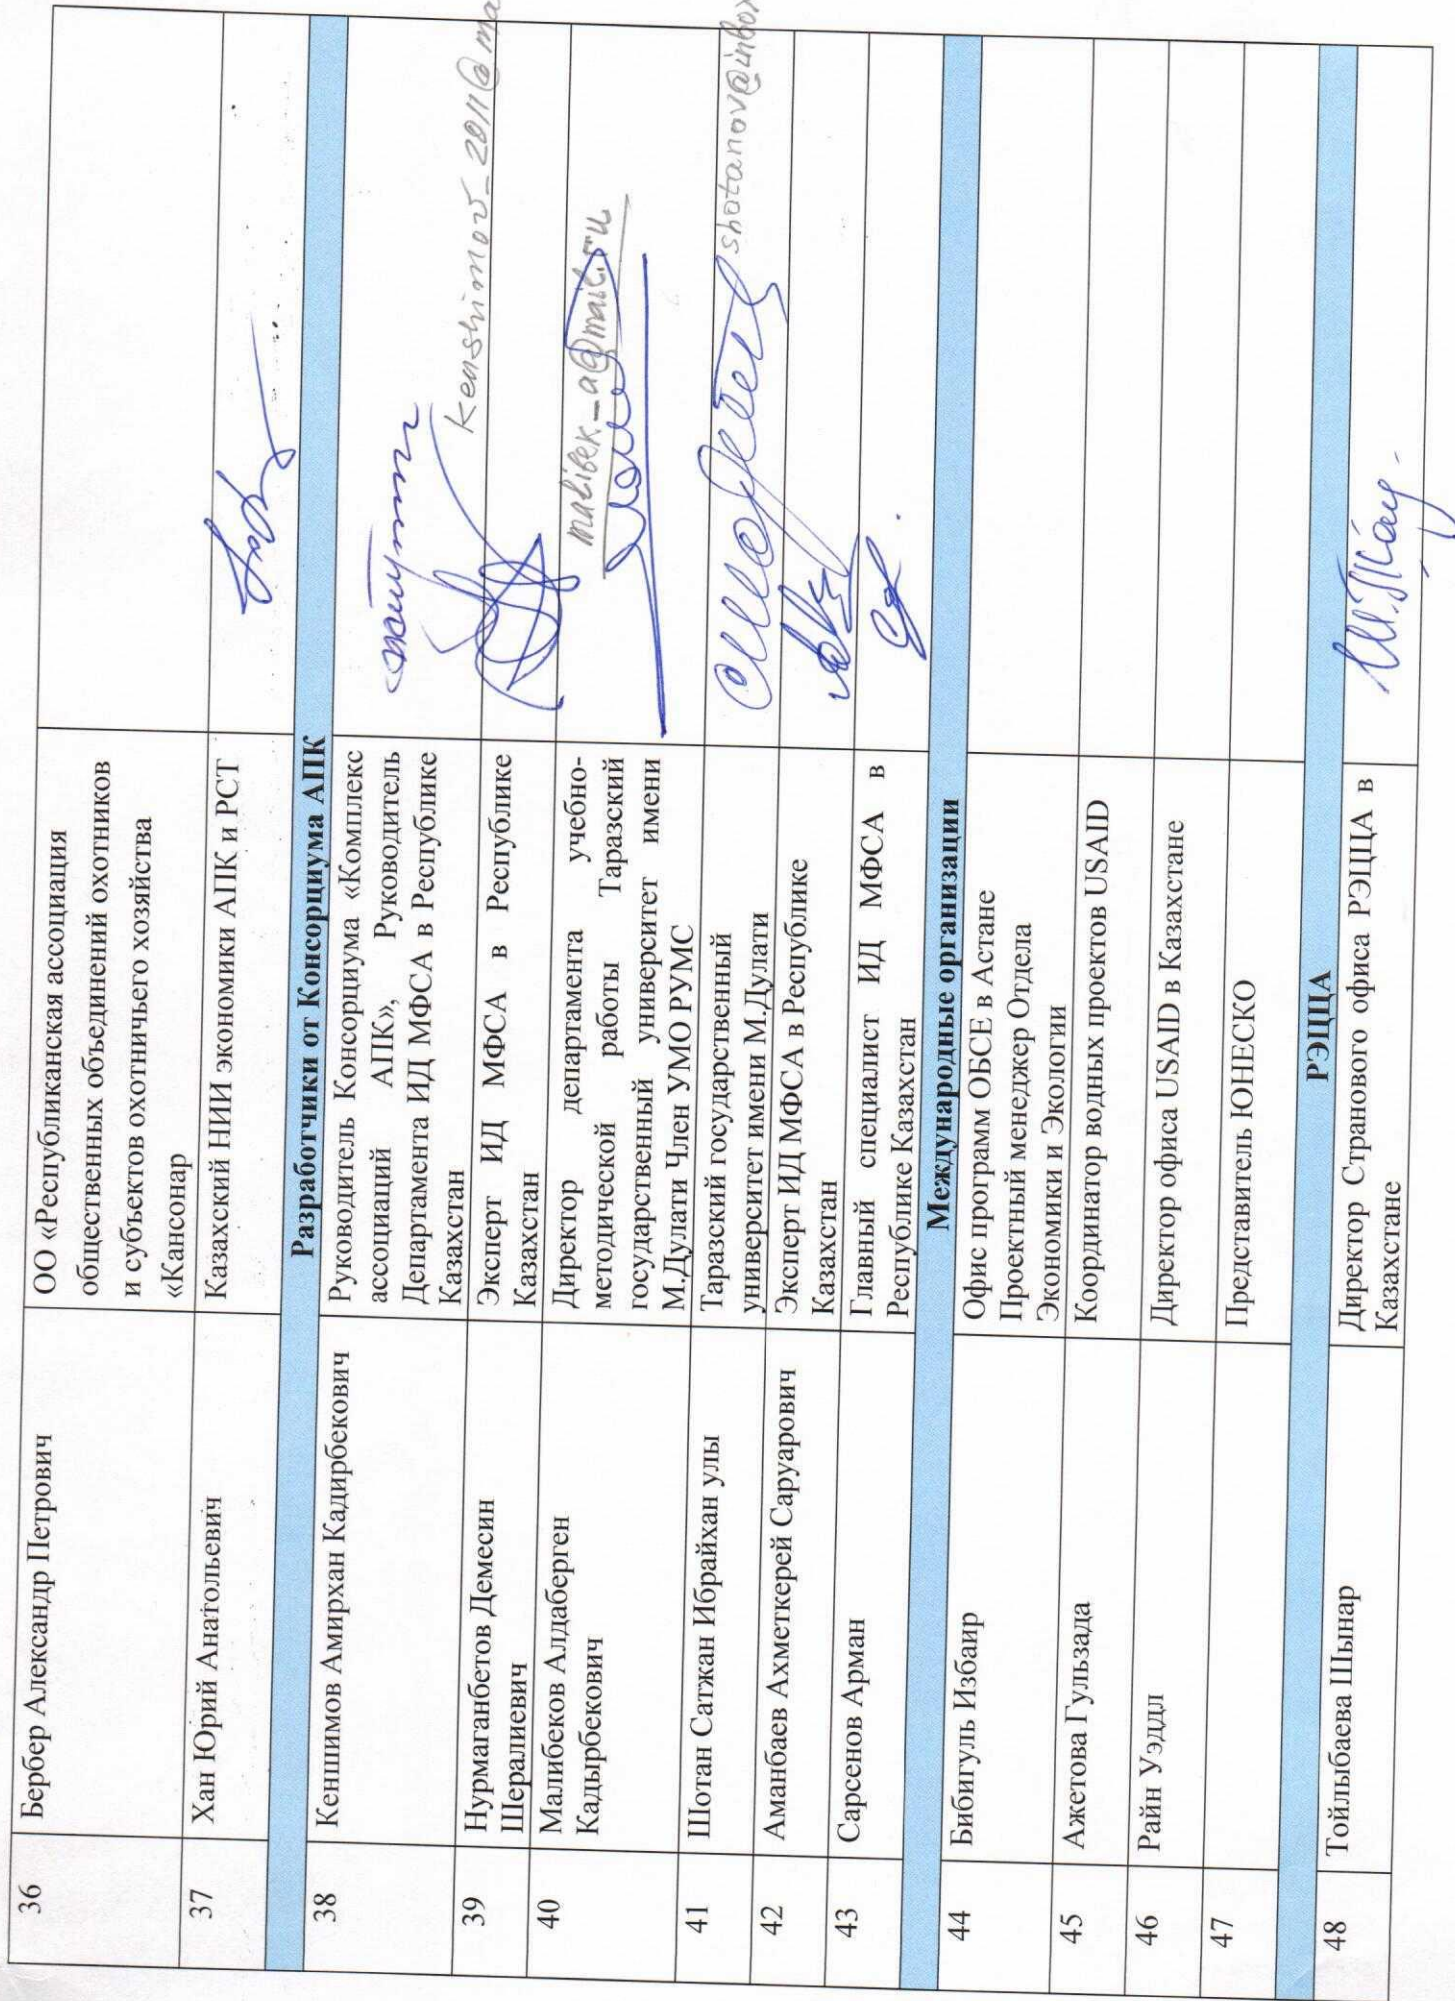 36
Бербер Александр Петрович
ОО «Республиканская ассоциация
общественных объединений охотников
и субъектов охотничьего хозяйства
«Кансонар
37
Хан Юрий Анатольевич
Казахский НИИ экономики АПК и РСТ
Разработчики от Консорциума АПК
38
Кеншимов Амирхан Кадирбекович
Руководитель Консорциума «Комплекс
ассоциаций АПК», Руководитель
Департамента ИД МФСА в Республике
Казахстан
kenshimov_2011@ma
39
Нурмаганбетов Демесин
Шералиевич
Эксперт ИД МФСА в Республике
Казахстан
40
Малибеков Алдаберген
Кадырбекович
Директор департамента учебно-
методической работы Таразский
государственный университет имени
М.Дулати Член УМО РУМС
malibek_a@mail.ru
41
Шотан Сатжан Ибрайхан улы
Таразский государственный
университет имени М.Дулати
shotanov@inbox
42
Аманбаев Ахметкерей Саруарович
Эксперт ИД МФСА в Республике
Казахстан
43
Сарсенов Арман
Главный специалист ИД МФСА в
Республике Казахстан
Международные организации
44
Бибигуль Избаир
Офис программ ОБСЕ в Астане
Проектный менеджер Отдела
Экономики и Экологии
45
Ажетова Гульзада
Координатор водных проектов USAID
46
Райн Уэддл
Директор офиса USAID в Казахстане
47
Представитель ЮНЕСКО
РЭЦЦА
48
Тойлыбаева Шынар
Директор Странового офиса РЭЦЦА в
Казахстане